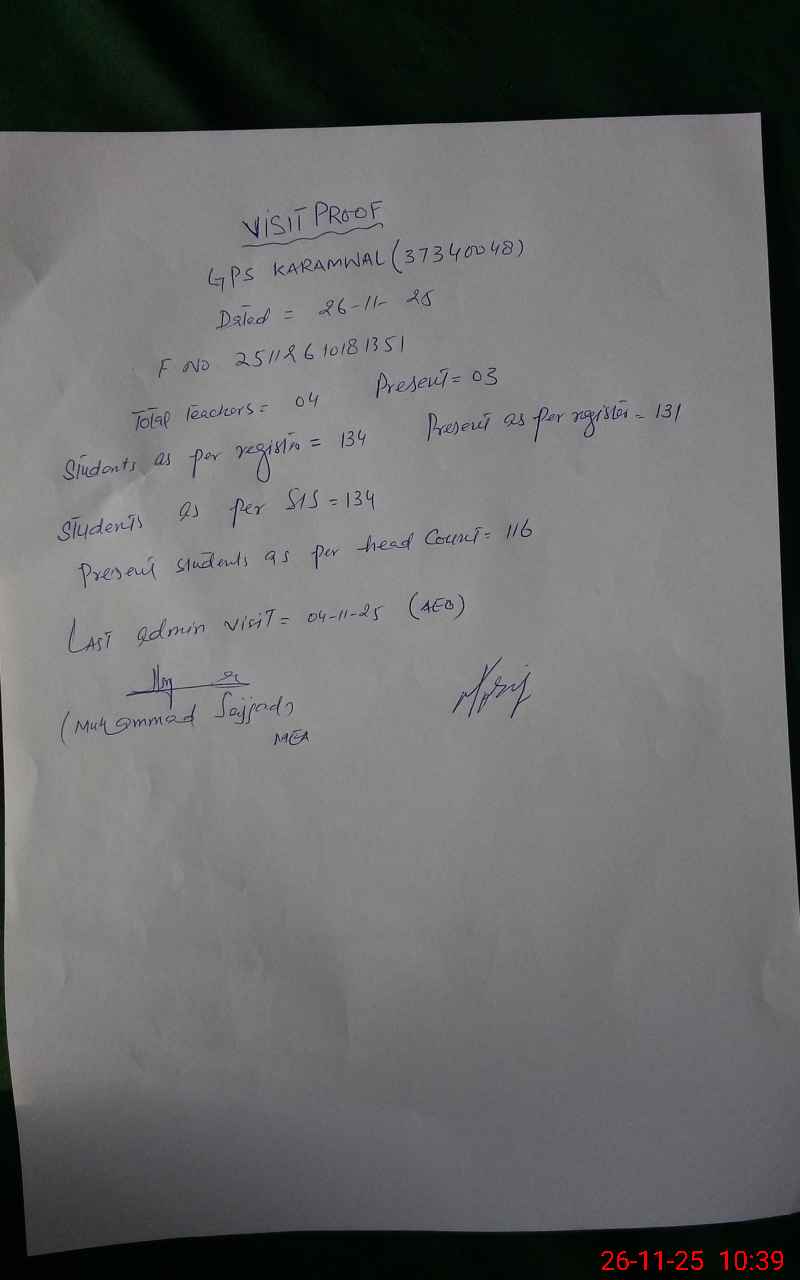 VISIT PROOF
GPS KARAMWAL (37340048)
Dated = 26-11-25
F NO 25112610181351
Total Teachers = 04 Present = 03
Students as per register = 134 Present as per register = 131
Students as per SIS = 134
Present students as per head count = 116
LAST admin visit = 04-11-25 (AEO)
(Muhammad Sajjad)
MEA
26-11-25 10:39